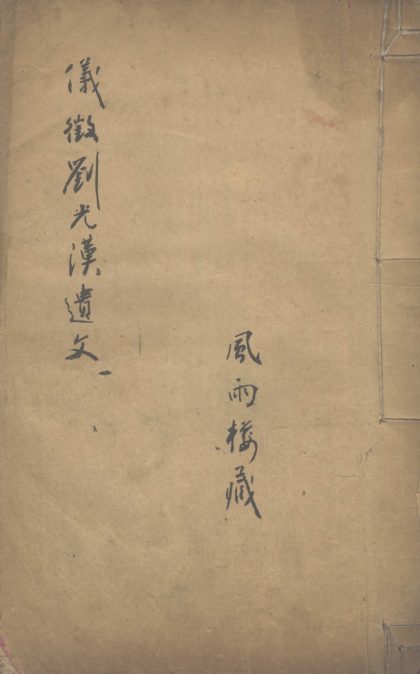 儀徵劉光漢遺文
風雨楼藏